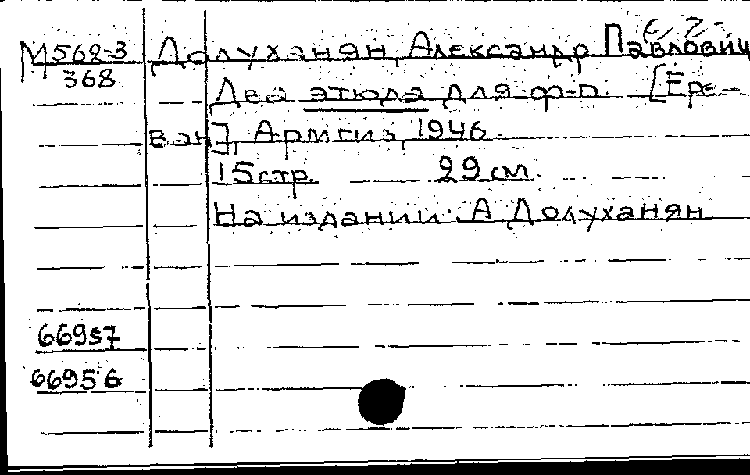 М568-3 Долуханян, Александр Павлович
368
Два этюда для ф-п. [Ере-
ван], Армгиз, 1946.
15 стр. 29 см.
На издании: А Долуханян
66957
66956